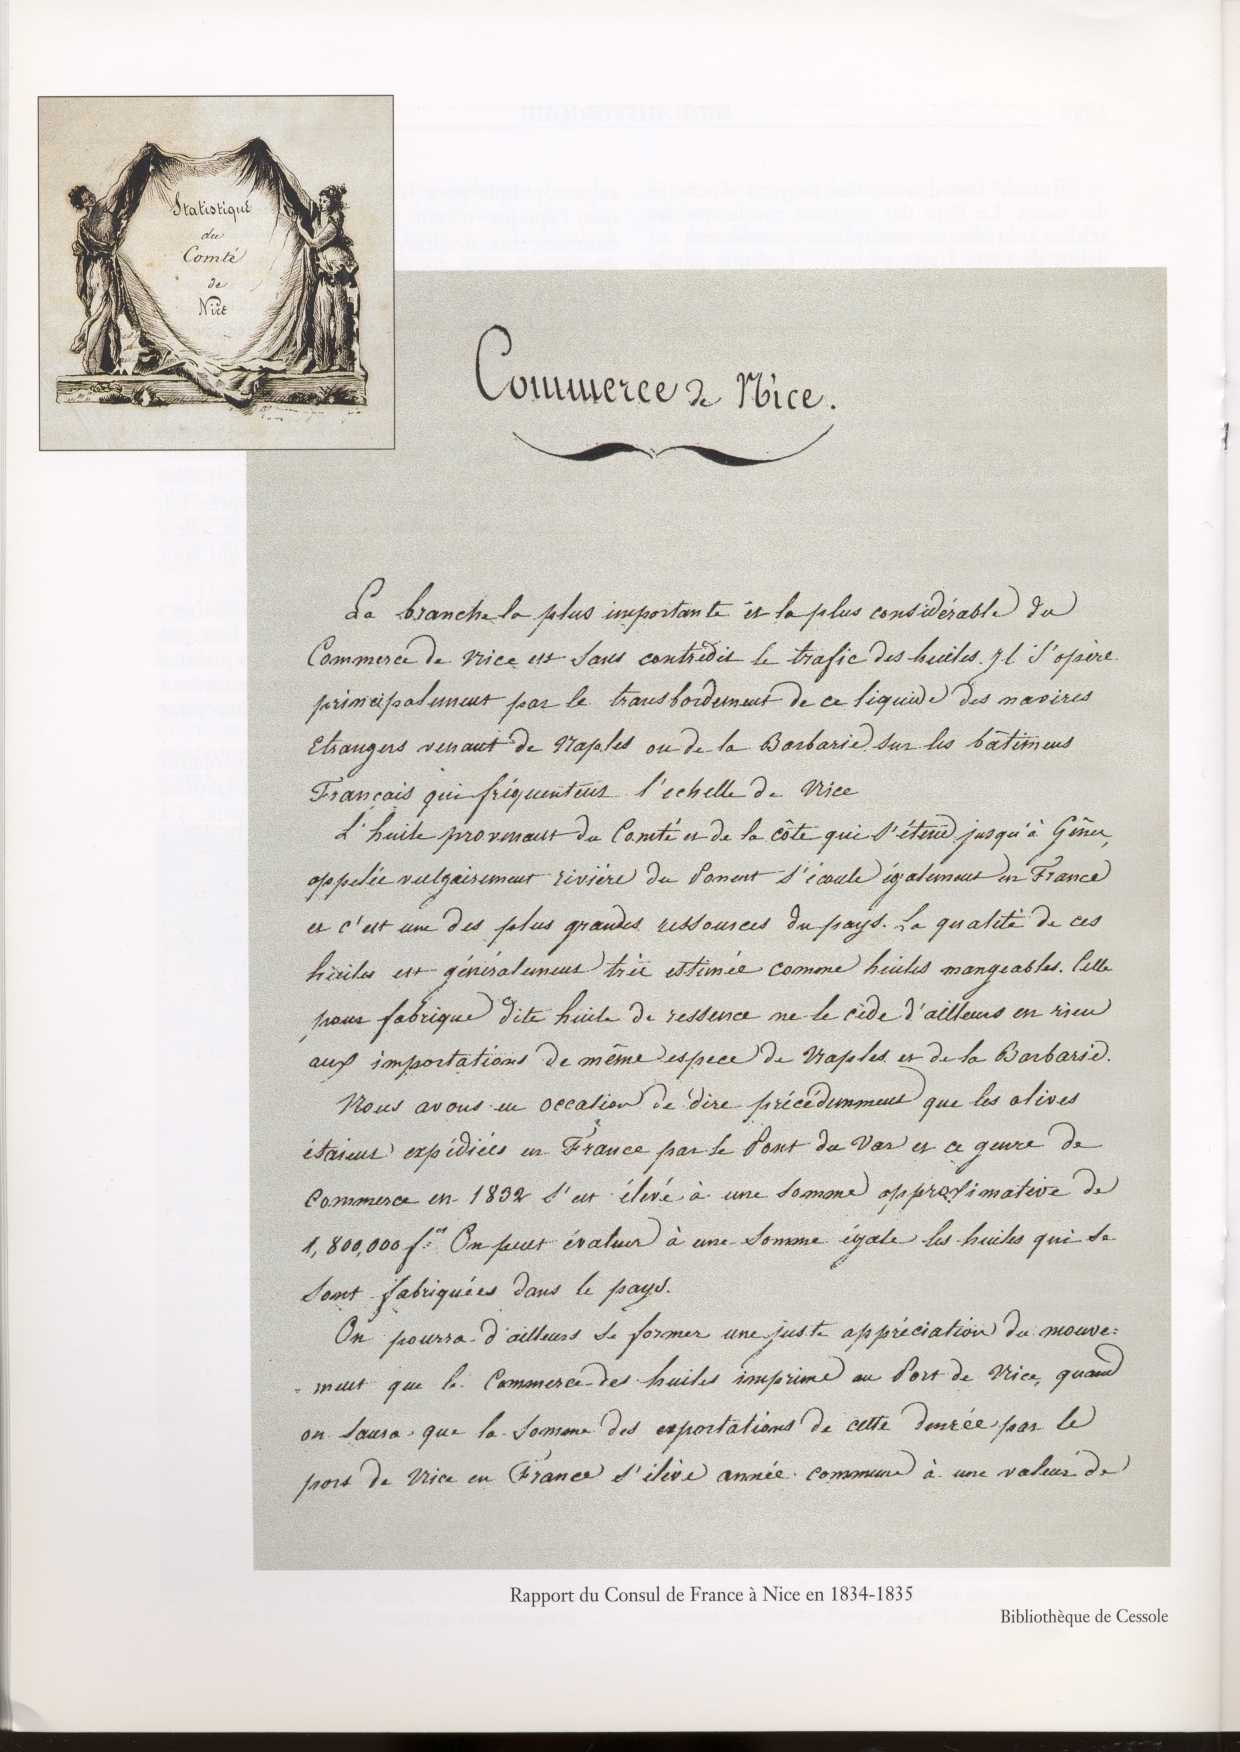 Statistique
du
Comté
de
Nice
Commerce de Nice.
La branche la plus importante et la plus considérable du
Commerce de Nice est sans contredit le trafic des huiles. Il s'opère
principalement par le transbordement de ce liquide des navires
Etrangers venant de Naples ou de la Barbarie sur les bâtimens
Français qui fréquentent l'echelle de Nice
L'huile provenant du Comté et de la côte qui s'étend jusqu'à Gênes,
appelée vulgairement rivière du Ponent s'écoule également en France
et c'est une des plus grandes ressources du pays. La qualité de ces
huiles est généralement très estimée comme huiles mangeables. Celle
pour fabrique dite huile de ressence ne le cède d'ailleurs en rien
aux importations de même espece de Naples et de la Barbarie.
Nous avons eu occasion de dire précédemment que les olives
étaient expédiées en France par le Pont du Var et ce genre de
Commerce en 1832 s'est élevé à une somme approximative de
1,800,000 f.cs On peut évaluer à une somme égale les huiles qui se
sont fabriquées dans le pays.
On pourra d'ailleurs se former une juste appréciation du mouve=
=ment que le Commerce des huiles imprime au Port de Nice, quand
on saura que la somme des exportations de cette denrée par le
port de Nice en France s'élève année commune à une valeur de
Rapport du Consul de France à Nice en 1834-1835
Bibliothèque de Cessole